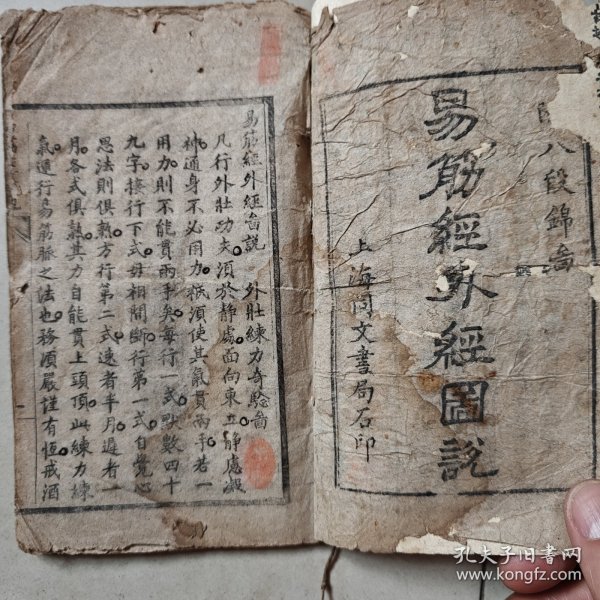 八段錦啚
易筋經外經圖說
上海同文書局石印
易筋經外經啚說　外壯練力奇驗啚
凡行外壯功夫須於静處面向東立静慮凝
神通身不必用力祇須使其氣貫兩手若一
用力則不能貫兩手矣每行一式默數四十
九字接行下式毋相間斷行第一式自覺心
思法則俱熟方行第二式速者半月遲者一
月各式俱熟其力自能貫上頭頂此練力練
氣運行易筋脉之法也務須嚴謹有恆戒酒
孔夫子旧书网
www.kongfz.com